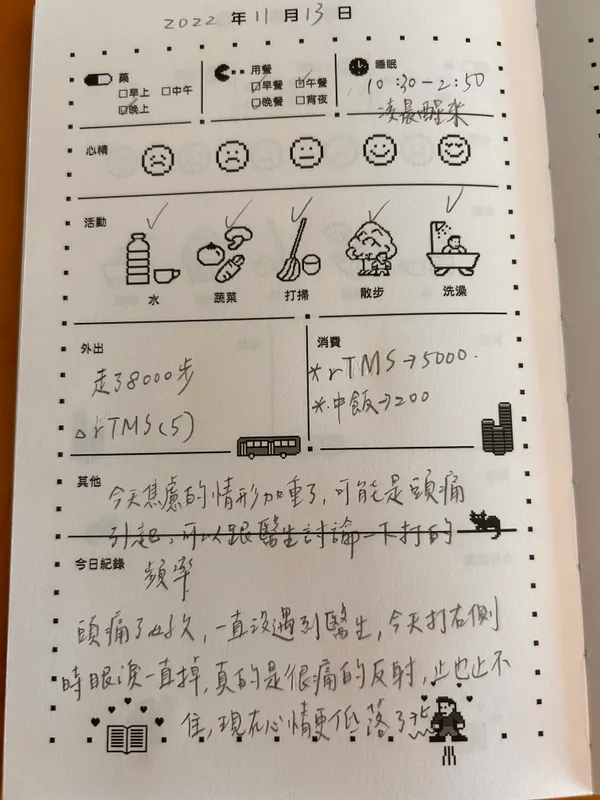 2022 年 11 月 13 日
藥
☐早上 ☐中午
☑晚上
用餐
☑早餐 ☑午餐
☑晚餐 ☐宵夜
睡眠
10:30-2:50
凌晨醒來
心情
活動
水 蔬菜 打掃 散步 洗澡
外出
走了8000步
△rTMS(5)
消費
*rTMS→5000.
*中飯→200
其他
今天焦慮的情形加重了,可能是頭痛
引起,可以跟醫生討論一下打的
今日紀錄
頻率
頭痛了好久,一直沒遇到醫生,今天打右側
時眼淚一直掉,真的是很痛的反射,止也止不
住,現在心情更低落了